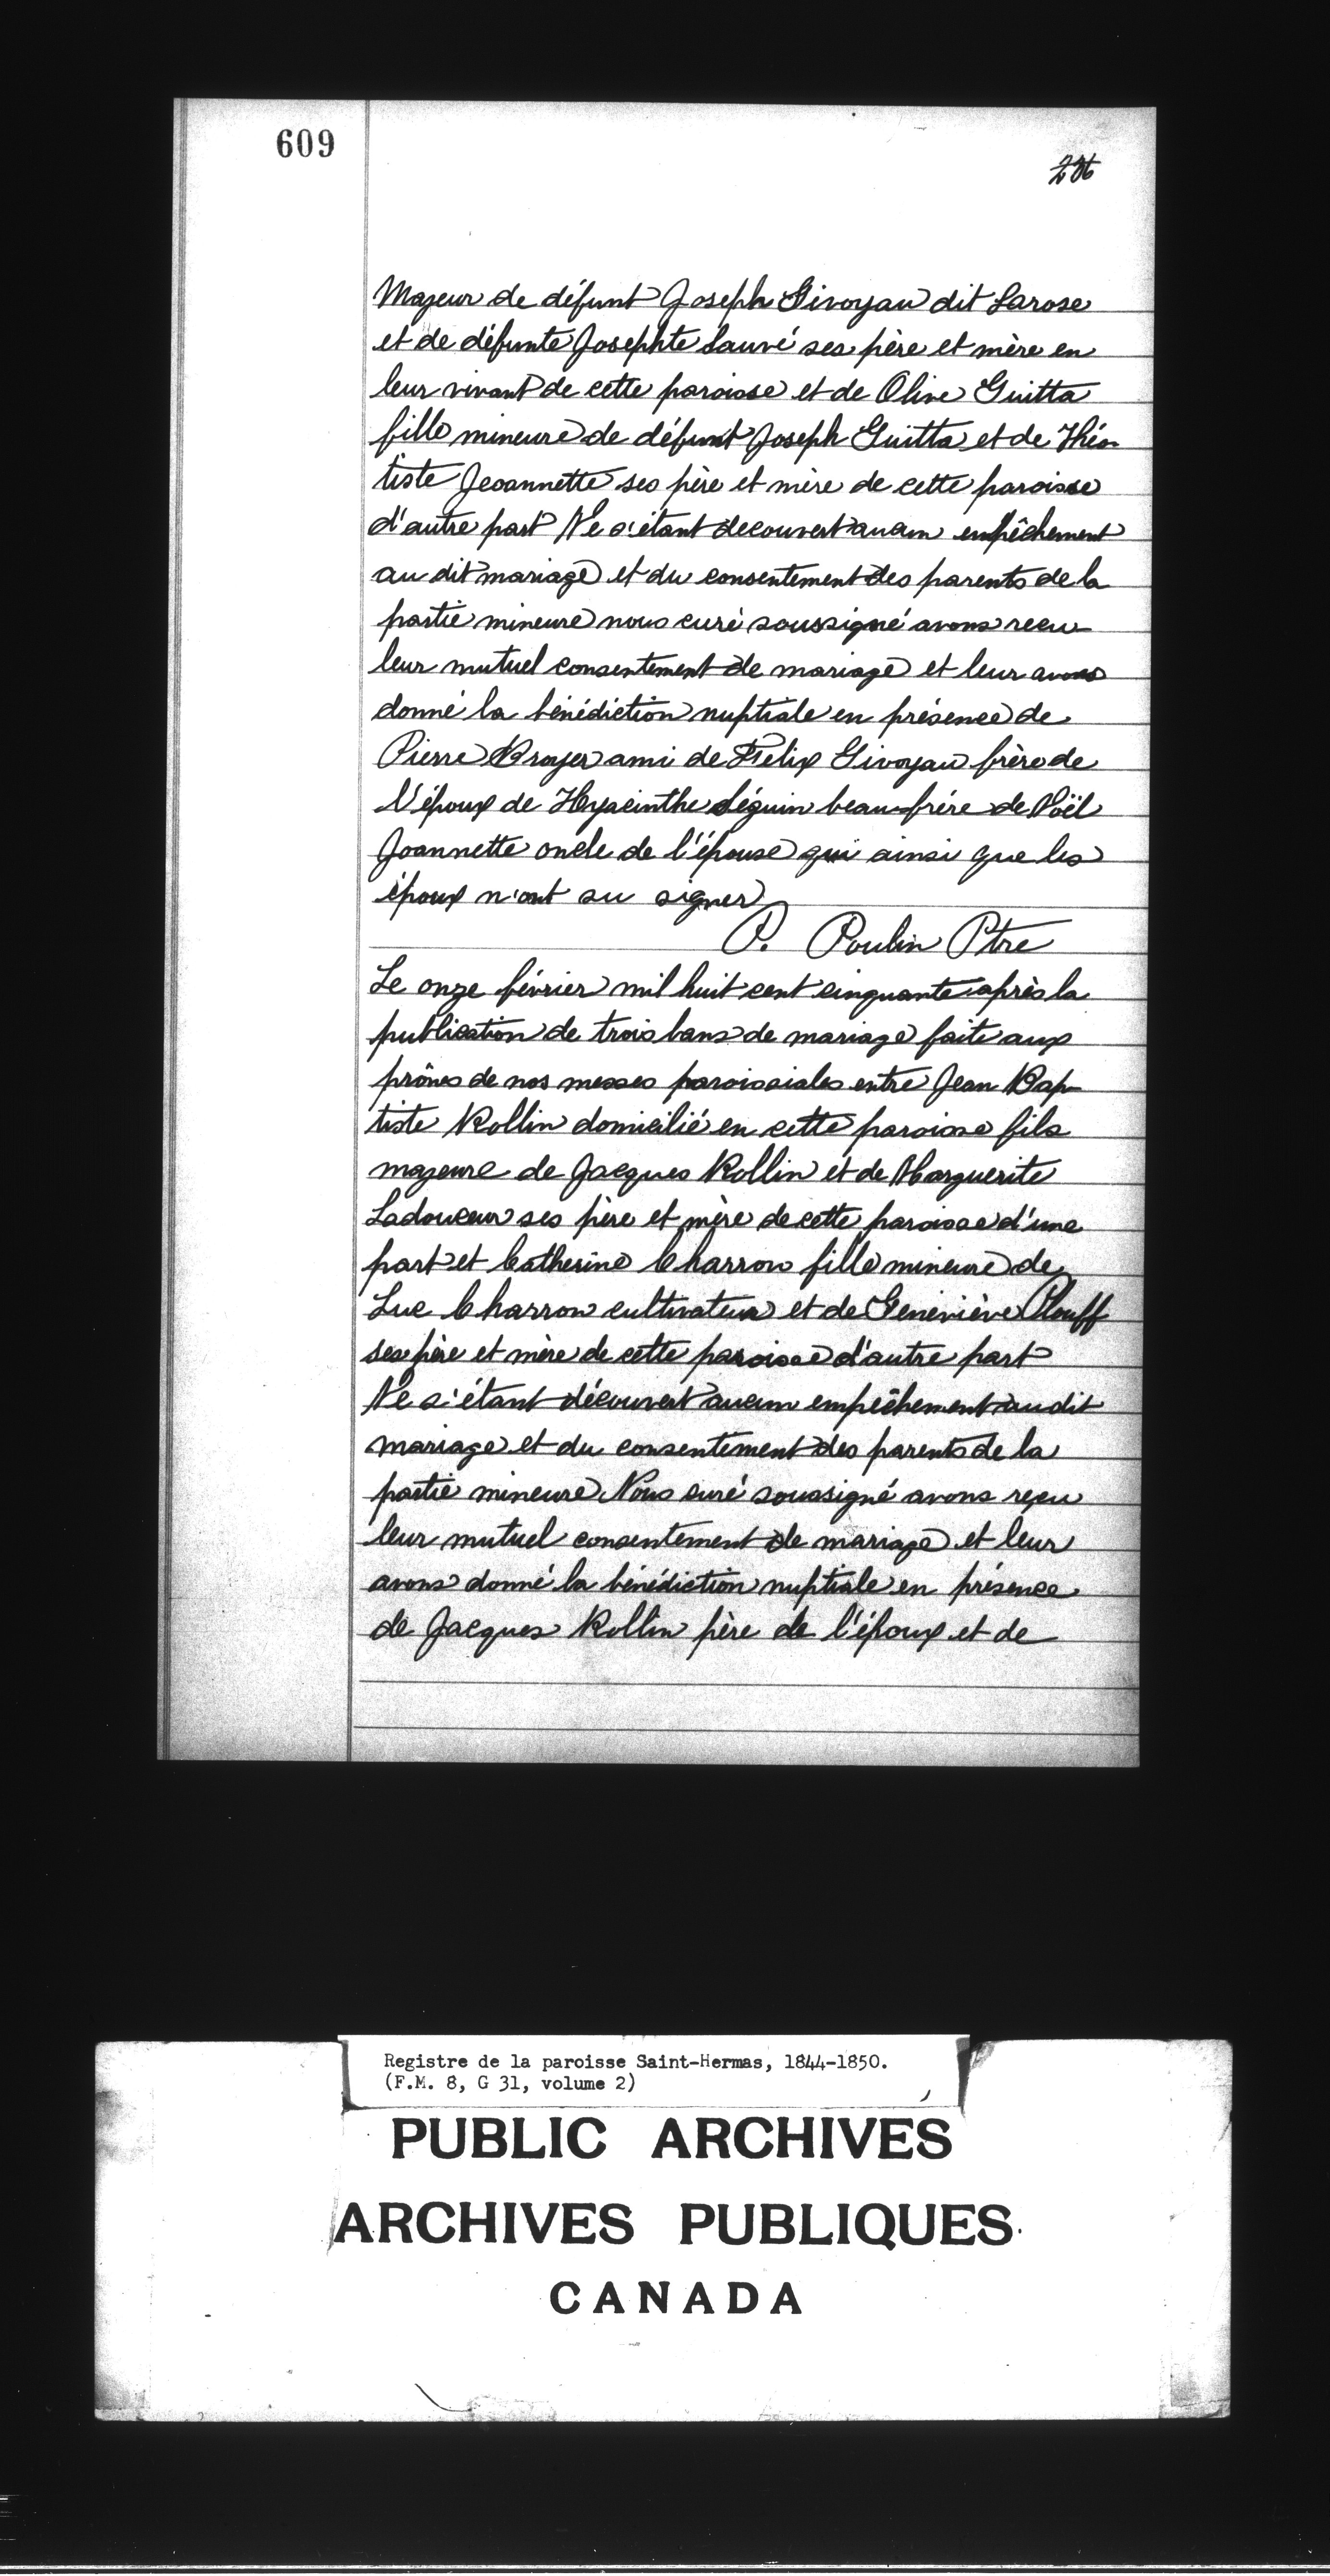 609
236
Majeur de défunt Joseph Givoyau dit Larose
et de défunte Josephte Sauvé ses père et mère en
leur vivant de cette paroisse et de Olive Guitta
fille mineure de défunt Joseph Guitta et de Théo
tiste Jeoannette ses père et mère de cette paroisse
d'autre part Ne s'étant decouvert aucun empêchement
au dit mariage et du consentement des parents de la
partie mineure nous curé soussigné avons recu
leur mutuel consentement de mariage et leur avons
donné la bénédiction nuptiale en présence de
Pierre Broyer ami de Felix Givoyau frère de
l'époux de Hyacinthe Séguin beau-frére de Noël
Joannette oncle de l'épouse qui ainsi que les
époux n'ont su signer
P. Poulin Ptre
Le onze février mil huit cent cinquante après la
publication de trois bans de mariage faite aux
prônes de nos messes paroissiales entre Jean Bap
tiste Rollin domicilié en cette paroisse fils
majeure de Jacques Rollin et de Marguerite
Ladouceur ses père et mère de cette paroisse d'une
part et Catherine Charron fille mineure de
Luc Charron cultivateur et de Geneviève Plouff
ses père et mère de cette paroisse d'autre part
Ne s'étant découvert aucun empêchement au dit
mariage et du consentement des parents de la
partie mineure Nous curé soussigné avons reçu
leur mutuel consentement de mariage et leur
avons donné la bénédiction nuptiale en présence
de Jacques Rollin père de l'époux et de
Registre de la paroisse Saint-Hermas, 1844-1850.
(F.M. 8, G 31, volume 2)
PUBLIC ARCHIVES
ARCHIVES PUBLIQUES
CANADA